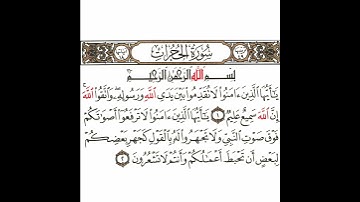 سُورَةُ الحُجُرَاتِ
بِسْمِ اللَّهِ الرَّحْمَٰنِ الرَّحِيمِ
يَٰٓأَيُّهَا ٱلَّذِينَ ءَامَنُوا۟ لَا تُقَدِّمُوا۟ بَيْنَ يَدَىِ ٱللَّهِ وَرَسُولِهِۦ ۖ وَٱتَّقُوا۟ ٱللَّهَ ۚ
إِنَّ ٱللَّهَ سَمِيعٌ عَلِيمٌ ١ يَٰٓأَيُّهَا ٱلَّذِينَ ءَامَنُوا۟ لَا تَرْفَعُوٓا۟ أَصْوَٰتَكُمْ
فَوْقَ صَوْتِ ٱلنَّبِىِّ وَلَا تَجْهَرُوا۟ لَهُۥ بِٱلْقَوْلِ كَجَهْرِ بَعْضِكُمْ
لِبَعْضٍ أَن تَحْبَطَ أَعْمَٰلُكُمْ وَأَنتُمْ لَا تَشْعُرُونَ ٢